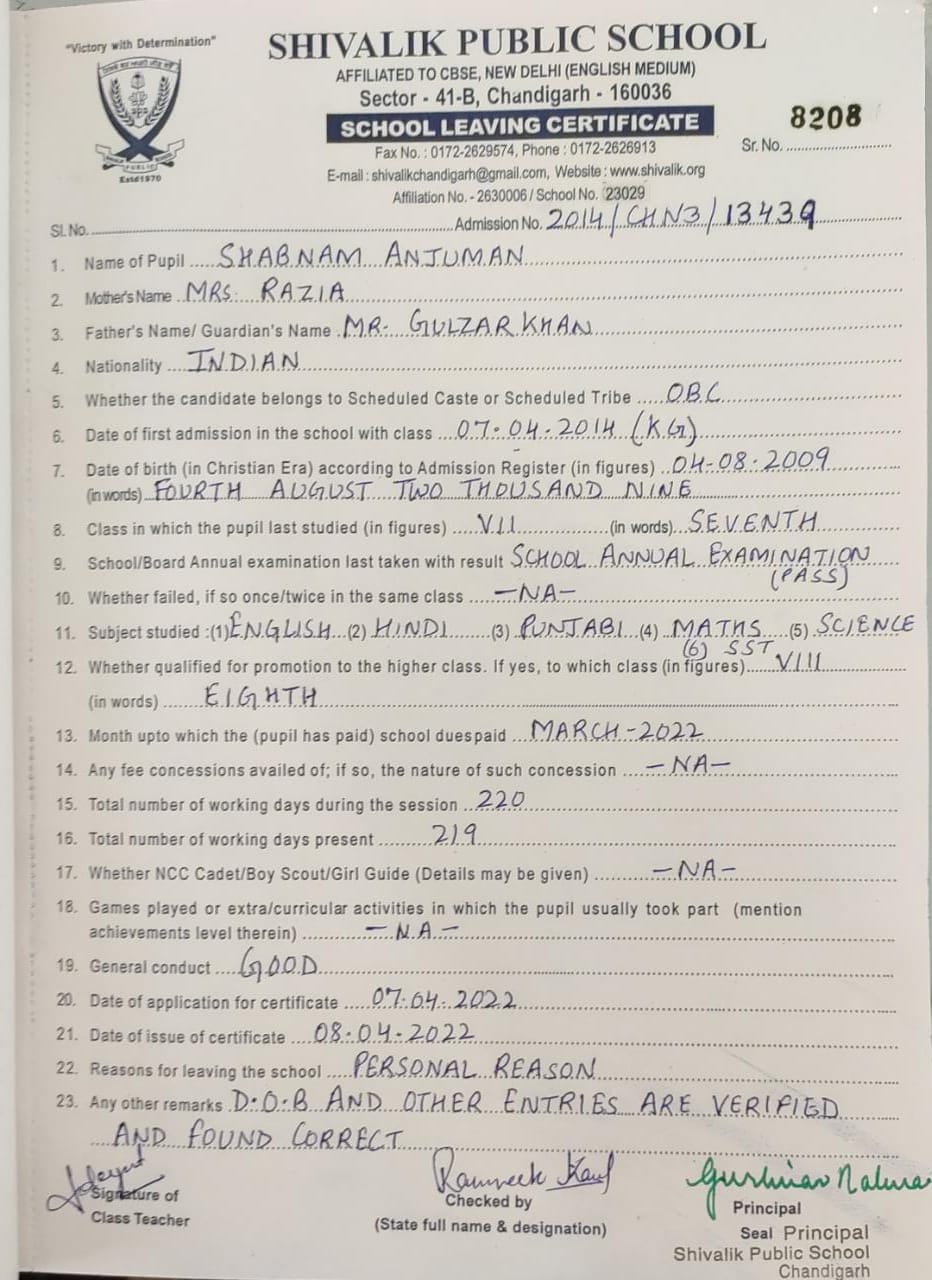 "Victory with Determination"
SHIVALIK PUBLIC SCHOOL
AFFILIATED TO CBSE, NEW DELHI (ENGLISH MEDIUM)
Sector - 41-B, Chandigarh - 160036
SCHOOL LEAVING CERTIFICATE
8208
Sr. No. ..............
Fax No. : 0172-2629574, Phone : 0172-2626913
E-mail : shivalikchandigarh@gmail.com, Website : www.shivalik.org
Affiliation No. - 2630006 / School No. 23029
PUBLIC
Estd1970
Sl. No. .............. Admission No. 2014/CHN3/13439
1. Name of Pupil ..... SHABNAM ANJUMAN
2. Mother's Name .. MRS. RAZIA
3. Father's Name/ Guardian's Name . MR. GULZAR KHAN
4. Nationality .... INDIAN
5. Whether the candidate belongs to Scheduled Caste or Scheduled Tribe ..... OBC
6. Date of first admission in the school with class ... 07-04-2014 (KG)
7. Date of birth (in Christian Era) according to Admission Register (in figures) .. 04-08-2009
(in words) FOURTH AUGUST TWO THOUSAND NINE
8. Class in which the pupil last studied (in figures) .... VII .... (in words) SEVENTH
9. School/Board Annual examination last taken with result SCHOOL ANNUAL EXAMINATION
(PASS)
10. Whether failed, if so once/twice in the same class ... -NA-
11. Subject studied :(1) ENGLISH (2) HINDI (3) PUNJABI (4) MATHS (5) SCIENCE
(6) SST
12. Whether qualified for promotion to the higher class. If yes, to which class (in figures) ..... VIII
(in words) ....... EIGHTH
13. Month upto which the (pupil has paid) school duespaid ... MARCH-2022
14. Any fee concessions availed of; if so, the nature of such concession .... -NA-
15. Total number of working days during the session .. 220
16. Total number of working days present .......... 219
17. Whether NCC Cadet/Boy Scout/Girl Guide (Details may be given) .......... -NA-
18. Games played or extra/curricular activities in which the pupil usually took part (mention
achievements level therein) ........... -N.A-
19. General conduct .... GOOD
20. Date of application for certificate ..... 07.04.2022
21. Date of issue of certificate .... 08-04-2022
22. Reasons for leaving the school .... PERSONAL REASON
23. Any other remarks D.O.B AND OTHER ENTRIES ARE VERIFIED
AND FOUND CORRECT
Signature of
Class Teacher
Ramneek Kaur
Checked by
(State full name & designation)
Principal
Seal Principal
Shivalik Public School
Chandigarh